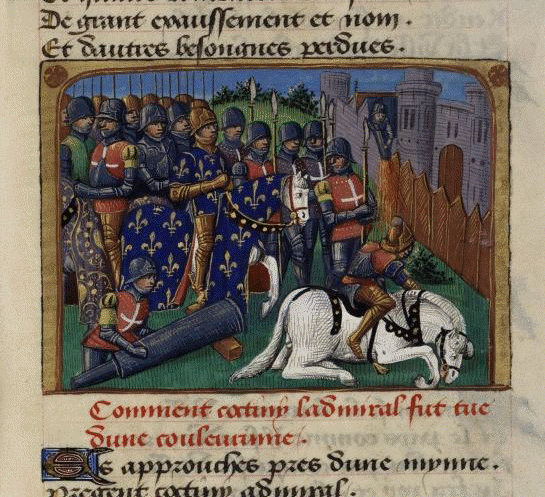 De grant exaussement et nom.
Et dautres besongnes perdues.
Comment cœtiny ladmiral fut tue
dune couleurinne.
Es approuches pres dune mynne.
Pregent cœtiny admiral.